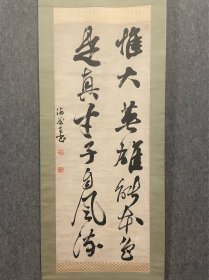 惟大英雄能本色
是真才子自風流